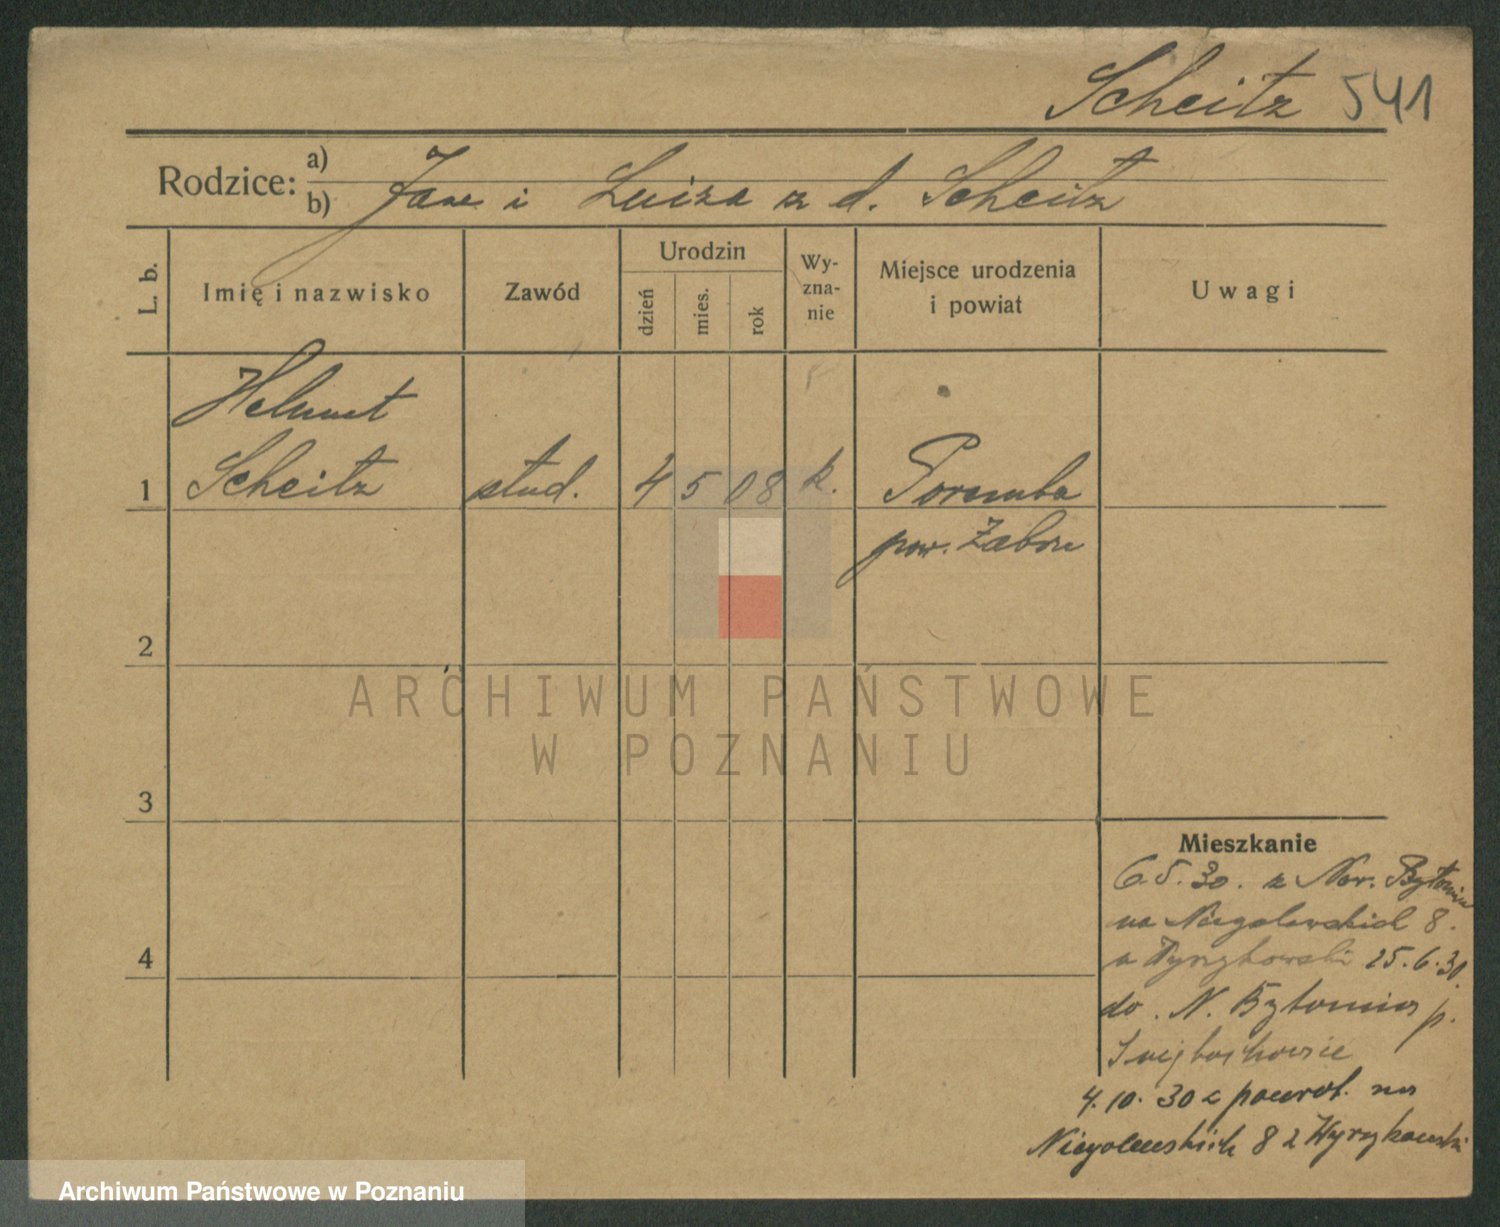 Scheitz 541
Rodzice: a)
b) Jan i Luiza z d. Scheitz
L. b.
Imię i nazwisko
Zawód
Urodzin
dzień
mies.
rok
Wy-
zna-
nie
Miejsce urodzenia
i powiat
Uwagi
Helmut
1 Scheitz stud. 4 5 08 k. Poremba
pow. Zabrze
2
3
4
ARCHIWUM PAŃSTWOWE
W POZNANIU
Mieszkanie
6.5.30. z Now. Bytomia
na Niegolewskich 8.
a 25.6.30.
do. N. Bytomia p.
4.10.30 z powrot. na
Niegolewskich 8 z Wyrzykowski
Archiwum Państwowe w Poznaniu